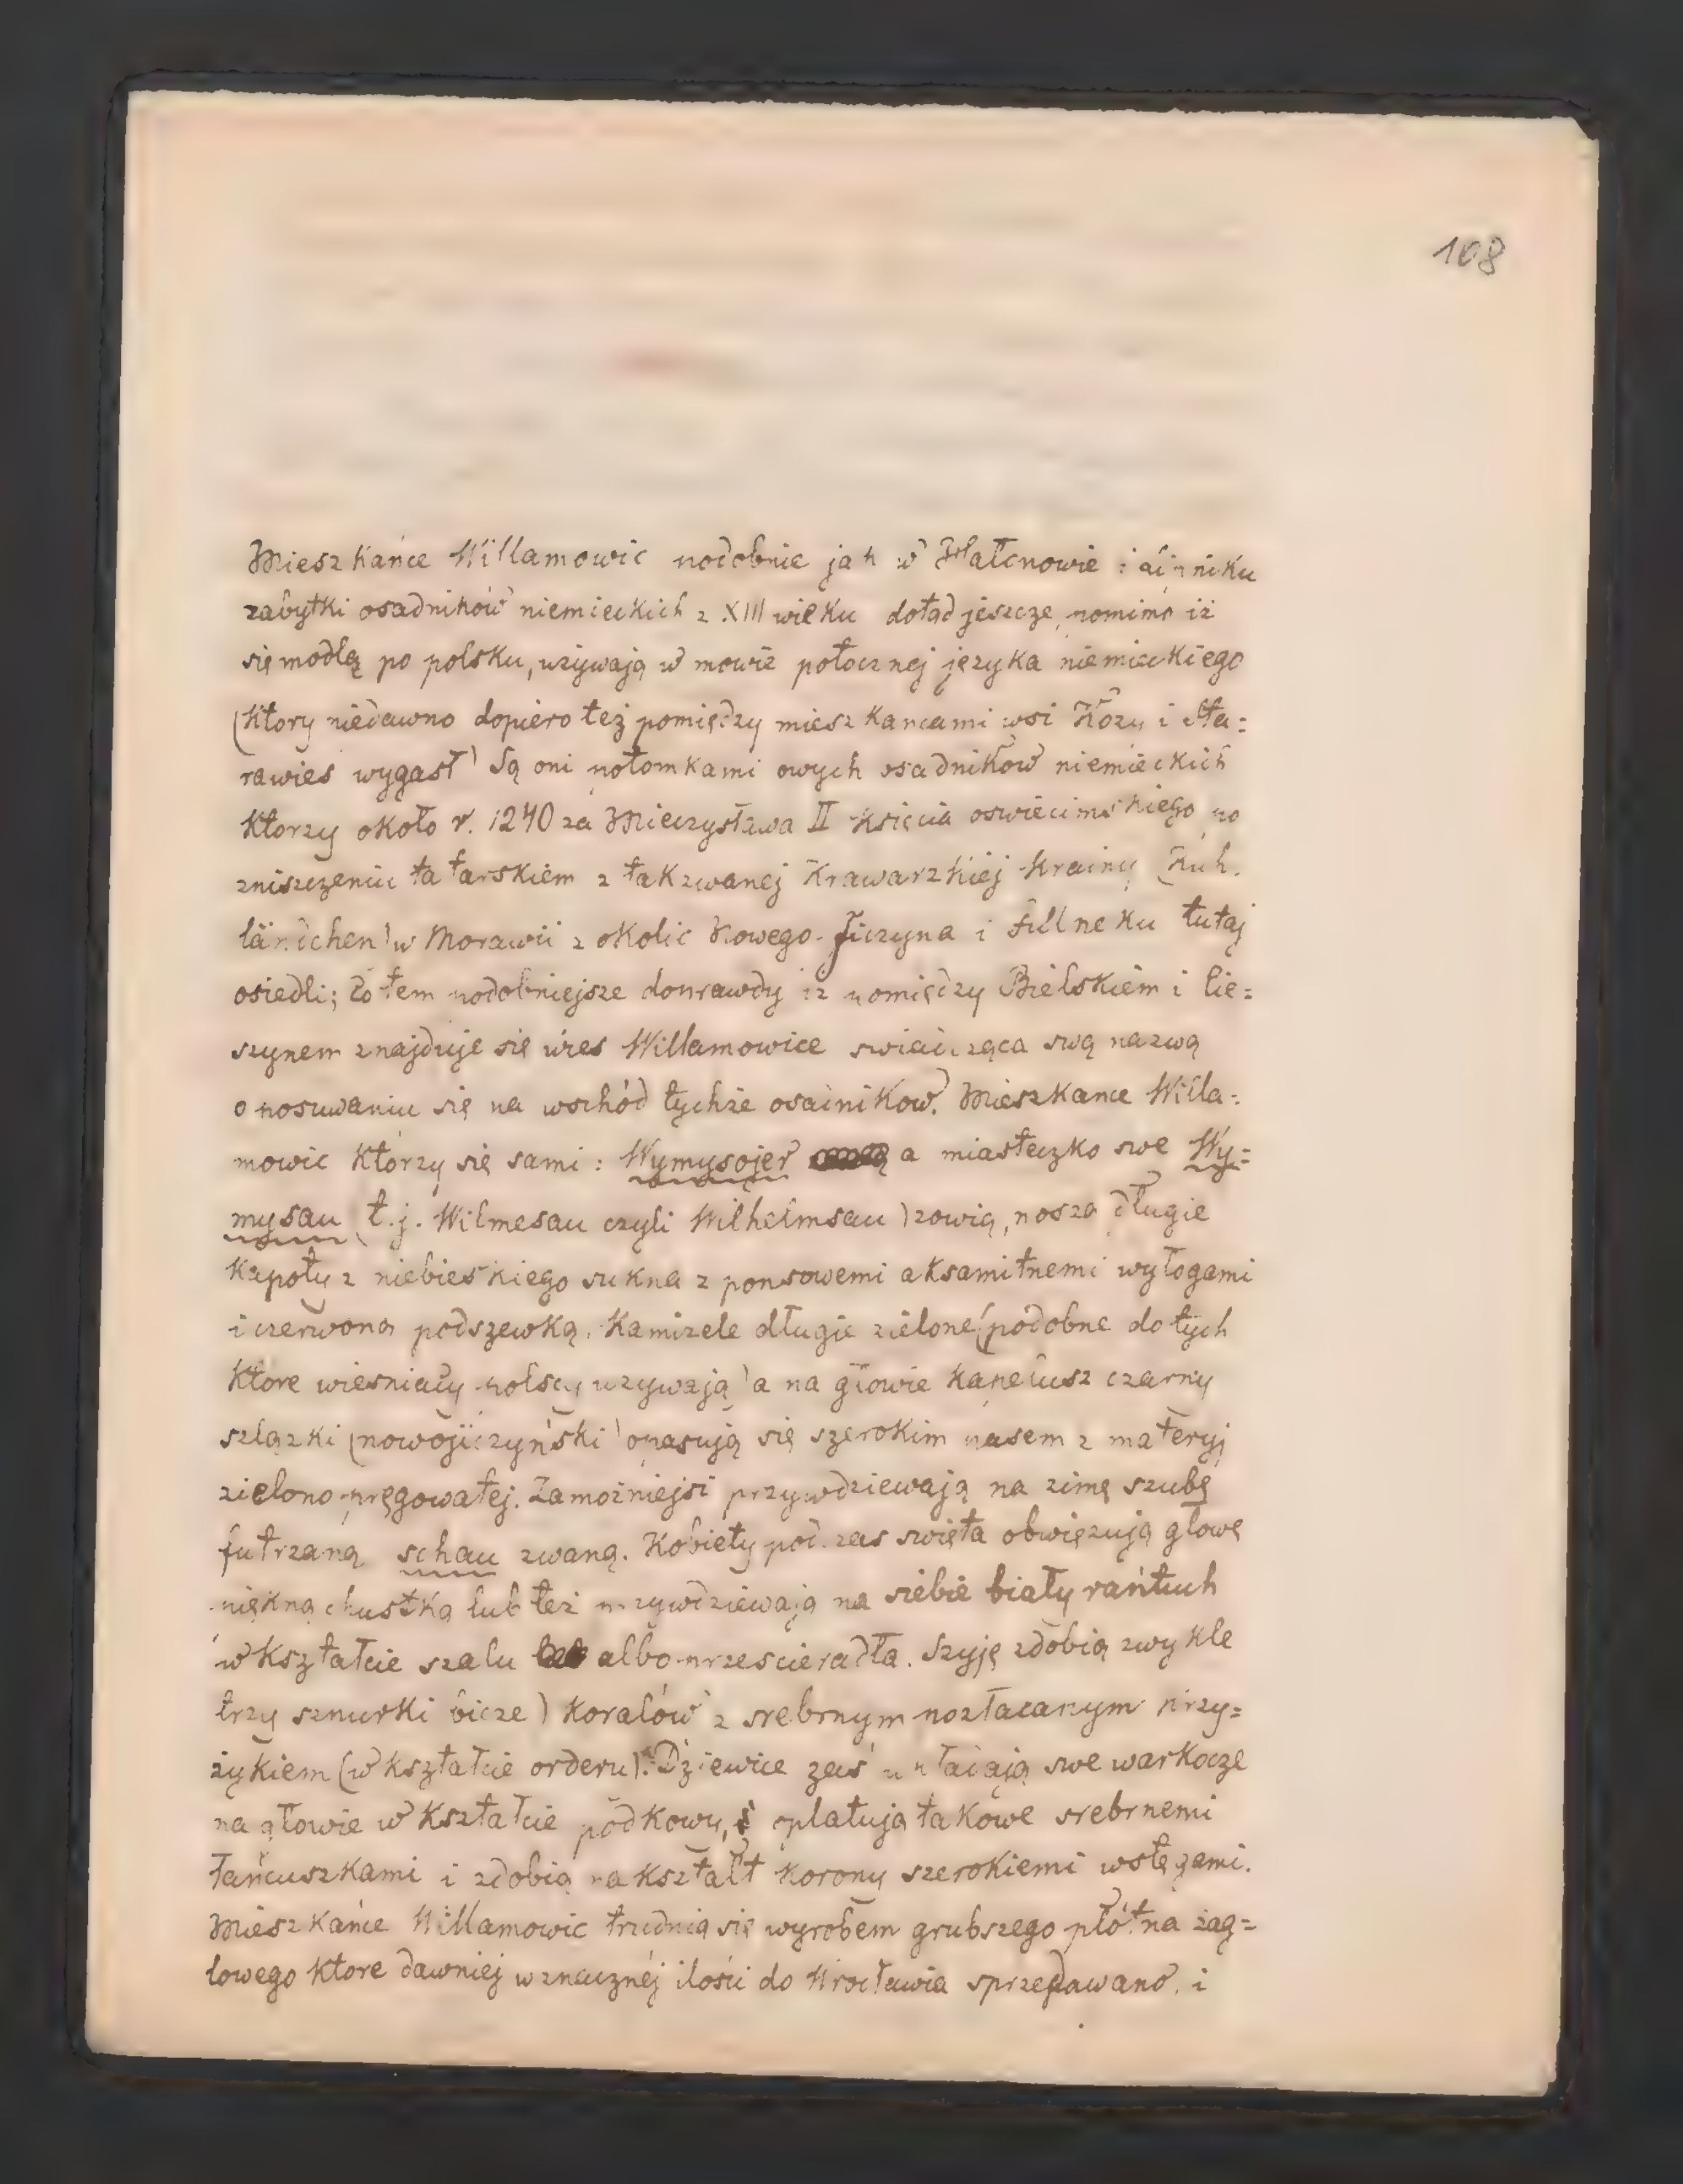 108
Mieszkańce Willamowic podobnie jak w Hałcnowie i
zabytki osadników niemieckich z XIII wieku dotąd jeszcze, pomimo iż
się modlą po polsku, używają w mowie potocznej języka niemieckiego
(ktory niedawno dopiero też pomiędzy mieszkancami wsi Kozy i Sta=
rawies wygasł) Są oni potomkami owych osadników niemieckich
ktorzy około r. 1240 za Mieczysława II księcia oswiecimskiego po
zniszczeniu tatarskiem z tak zwanej Krawarzkiej krainy (Kuh.
ländchen) w Morawii z okolic Nowego-Jiczyna i Fullneku tutaj
osiedli; co tem podobniejsze doprawdy iz pomiędzy Bielskiem i Cie=
szynem znajduje się wies Willamowice swiadcząca swą nazwą
o posuwaniu się na wschód tychże osadników. Mieszkance Willa=
mowic którzy się sami: Wymysojer a miasteczko swe Wy=
mysau (t.j. Wilmesau czyli Wilhelmsau) zowią, noszą długie
kapoty z niebieskiego sukna z ponsowemi aksamitnemi wyłogami
i czerwoną podszewką. Kamizele długie zielone (podobne do tych
ktore wiesniacy polscy uzywają) a na głowie kapelusz czarny
szlązki (nowojiczyński) opasują się szerokim pasem z materyj
zielono-pręgowatej. Zamożniejsi przywdziewają na zimę szubę
futrzaną schau zwaną. Kobiety podczas swięta obwięzują głowę
piękną chustką lub też przywdziewają na siebie biały rańtuch
w kształcie szalu albo przescieradła. Szyję zdobią zwykle
trzy sznurki (bicze) koralów z srebrnym pozłacanym krzy=
żykiem (w kształcie orderu). Dziewice zaś układają swe warkocze
na głowie w kształcie podkowy, i oplatują takowe srebrnemi
łańcuszkami i zdobią na kształt korony szerokiemi wstęgami.
Mieszkańce Willamowic trudnią się wyrobem grubszego płótna żag=
lowego ktore dawniej w znacznéj ilości do Wrocławia sprzedawano, i